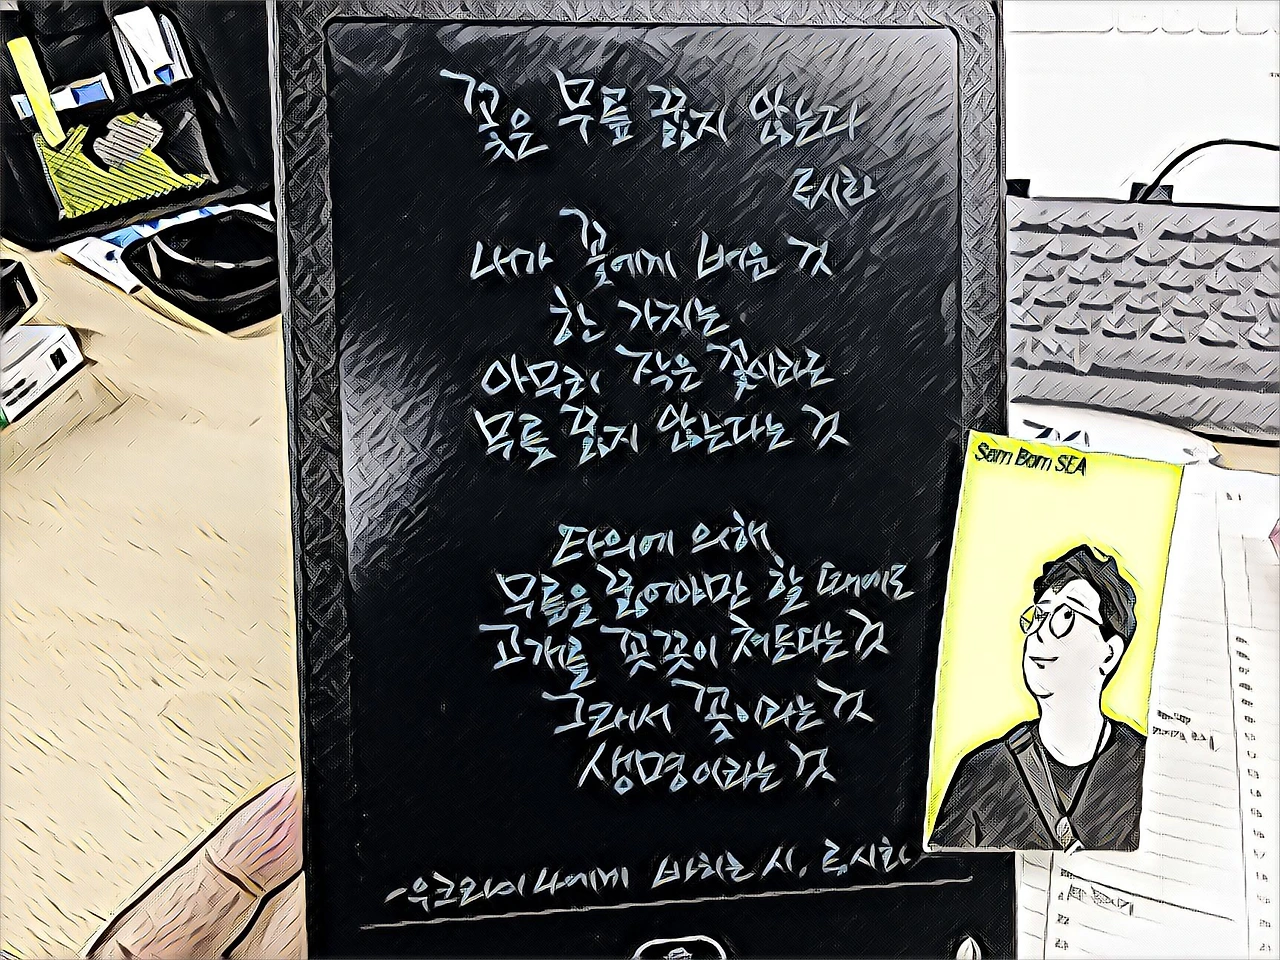 꽃은 무릎 꿇지 않는다
류시화
내가 꽃에게 배운 것
한 가지는
아무리 작은 꽃이라도
무릎 꿇지 않는다는 것
타의에 의해
무릎을 꿇어야만 할 때에도
고개를 꼿꼿이 쳐든다는 것
그래서 꽃이라는 것
생명이라는 것
-우크라이나에게 바치는 시. 류시화
Sam Bom SEA